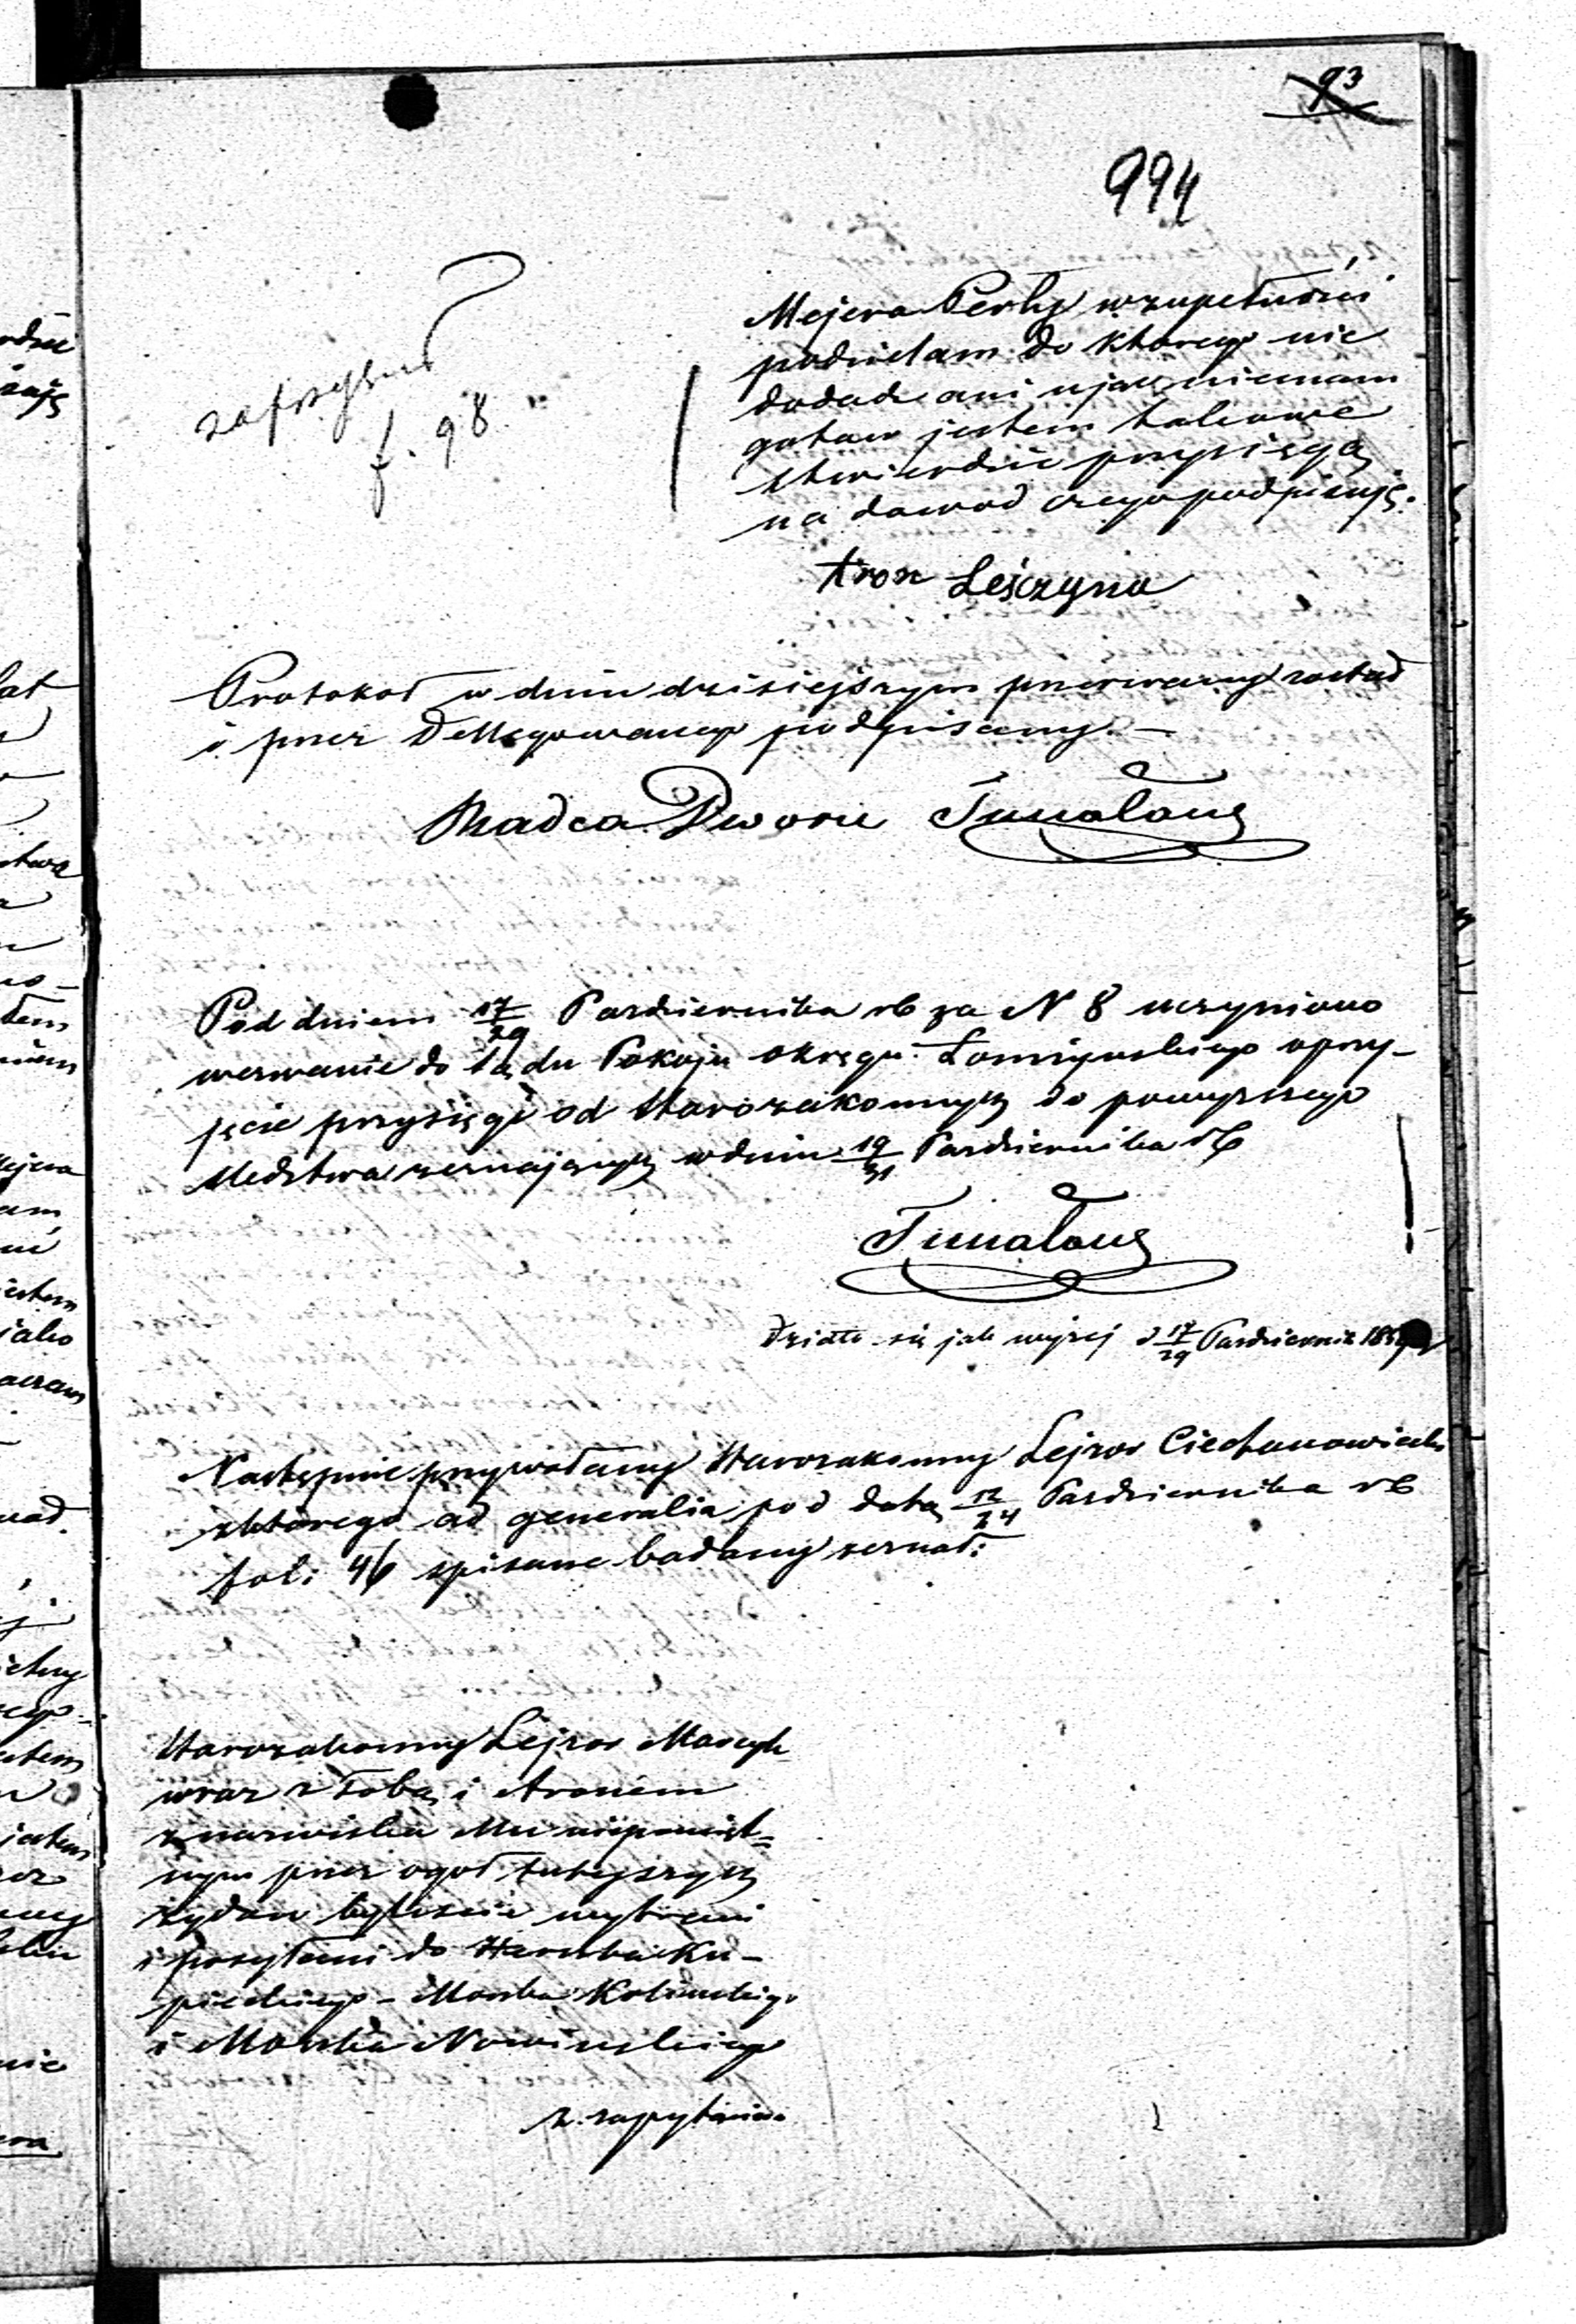 93
994
zaprzysiągł
f. 98
Mejera Perły w zupełności
podzielam do ktorego nic
dodać ani ująć niemam
gotow jestem takowe
stwierdzić przysięgą
na dowod czego podpisuję.
Aron Leszczyna
Protokoł w dniu dzisiejszym przerwany został
i przez Dellegowanego podpisany. —
Radca Dworu
Pod dniem 17/29 Pazdziernika rb za N 8 uczyniono
wezwanie do Sądu Pokoju okręgu Łomżyńskiego o przy-
jęcie przysięgi od Starozakonnych do powyższego
Sledztwa zeznających w dniu 19/31 Pazdziernika rb
Działo się jak wyżej d 17/29 Pazdziernik
Następnie przywołany Starozakonny Lejzor Ciechanowiecki
ktorego ad generalia pod datą 12/24 Pazdziernika rb
fol: 46 spisane badany zeznał:
Starozakonny Lejzor
wraz z Tobą i Aronem
z nazwiska Mu niepamięt-
nym przez ogoł tutejszych
żydow byliscie wybrani
i posyłani do Herszka Ku-
pieckiego - Moszka
i Moszka Nowinskiego
z zapytaniem